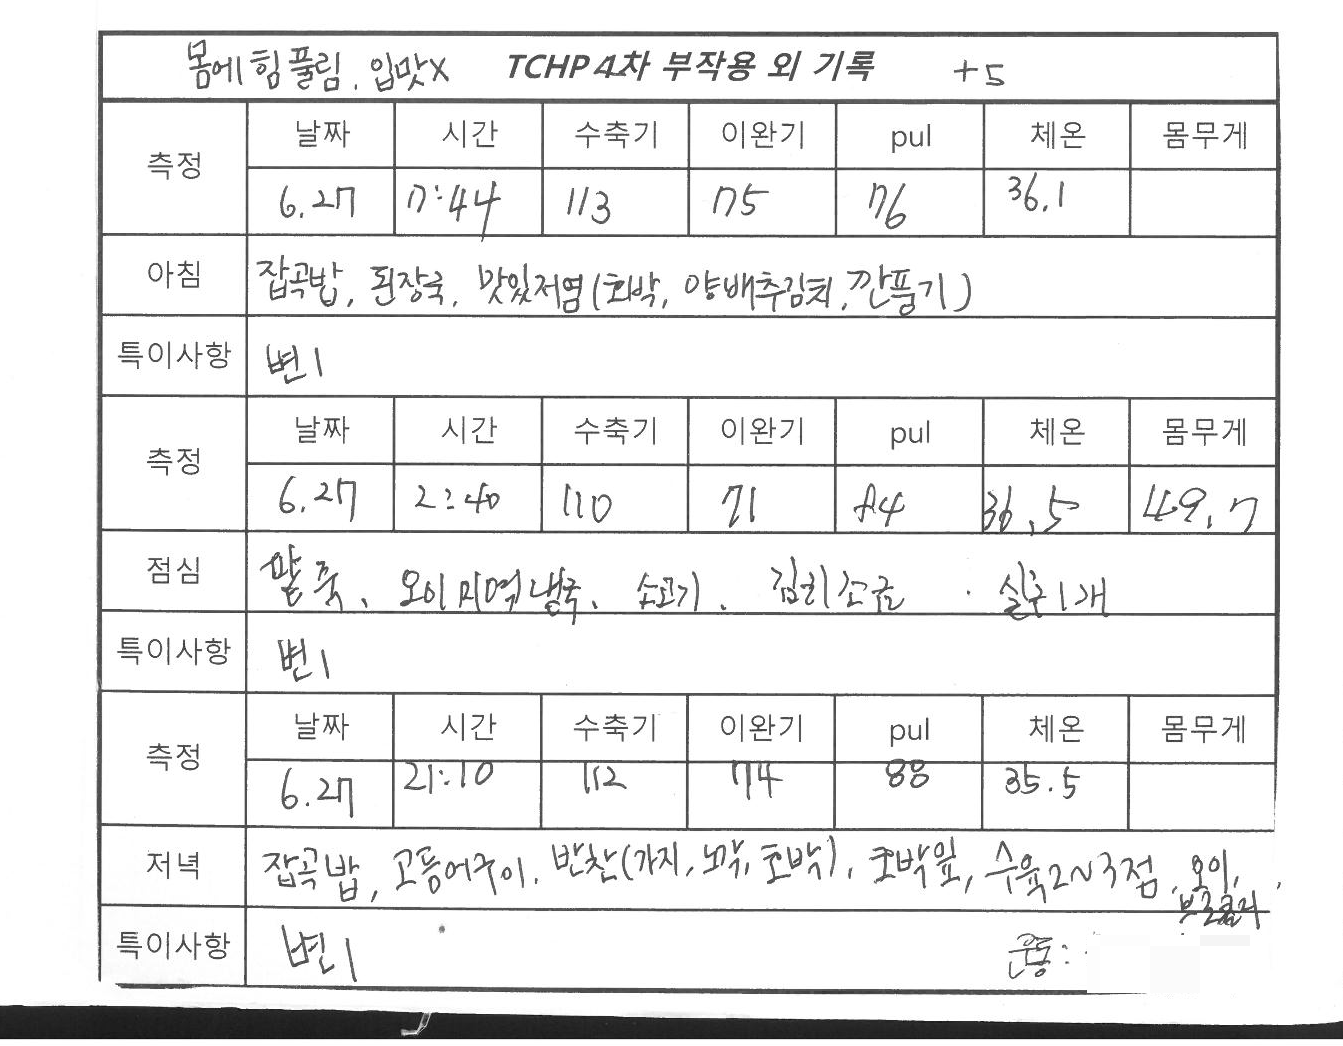 몸에 힘풀림, 입맛X TCHP 4차 부작용 외 기록 +5
측정 날짜 시간 수축기 이완기 pul 체온 몸무게
6.27 7:44 113 75 76 36.1
아침 잡곡밥, 된장국, 맛있저염(호박, 양배추김치, 깐풍기)
특이사항 변1
측정 날짜 시간 수축기 이완기 pul 체온 몸무게
6.27 2:40 110 71 84 36.5 49.7
점심 팥죽, 오이미역냉국, 소고기, 김치조금 1개
특이사항 변1
측정 날짜 시간 수축기 이완기 pul 체온 몸무게
6.27 21:10 112 74 88 35.5
저녁 잡곡밥, 고등어구이, 반찬(가지, 노각, 호박), 호박잎, 수육2~3점, 오이,
브로콜리
특이사항 변1 운동: